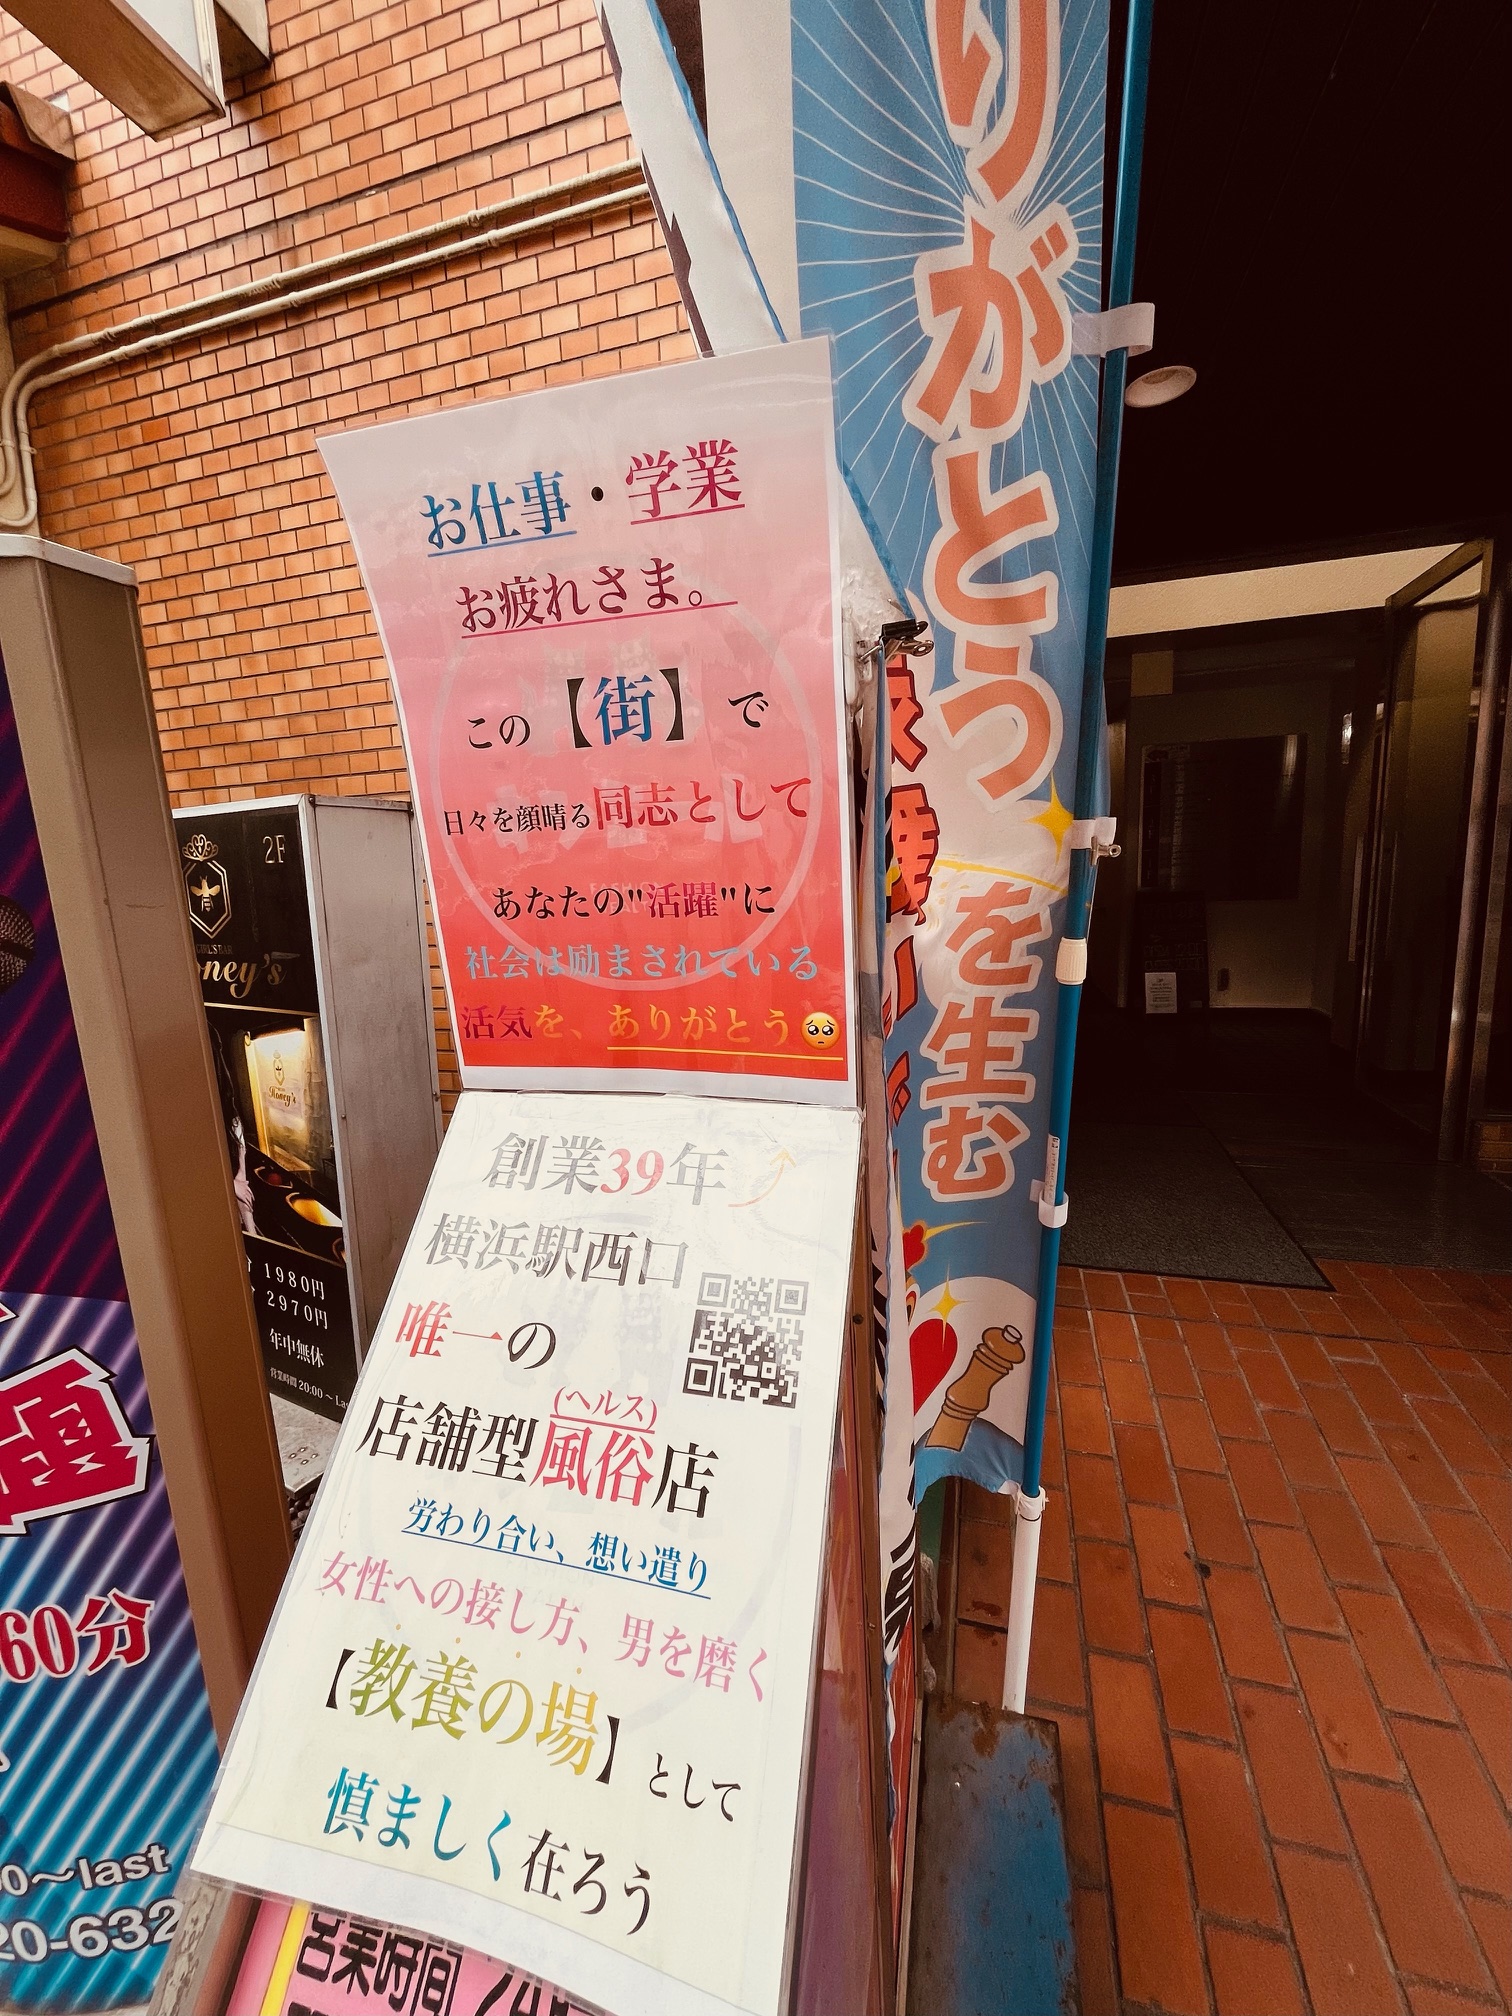 りがとう
を生む
お仕事・学業
お疲れさま。
この【街】で
日々を顔晴る同志として
あなたの"活躍"に
社会は励まされている
活気を、ありがとう🥺
創業39年
横浜駅西口
唯一の
(ヘルス)
店舗型風俗店
労わり合い、想い遣り
女性への接し方、男を磨く
【教養の場】として
慎ましく在ろう
営業時間
2F
GIRL'S BAR
oney's
Honey's
1980円
2970円
年中無休
営業時間 20:00～La
60分
0～last
20-632